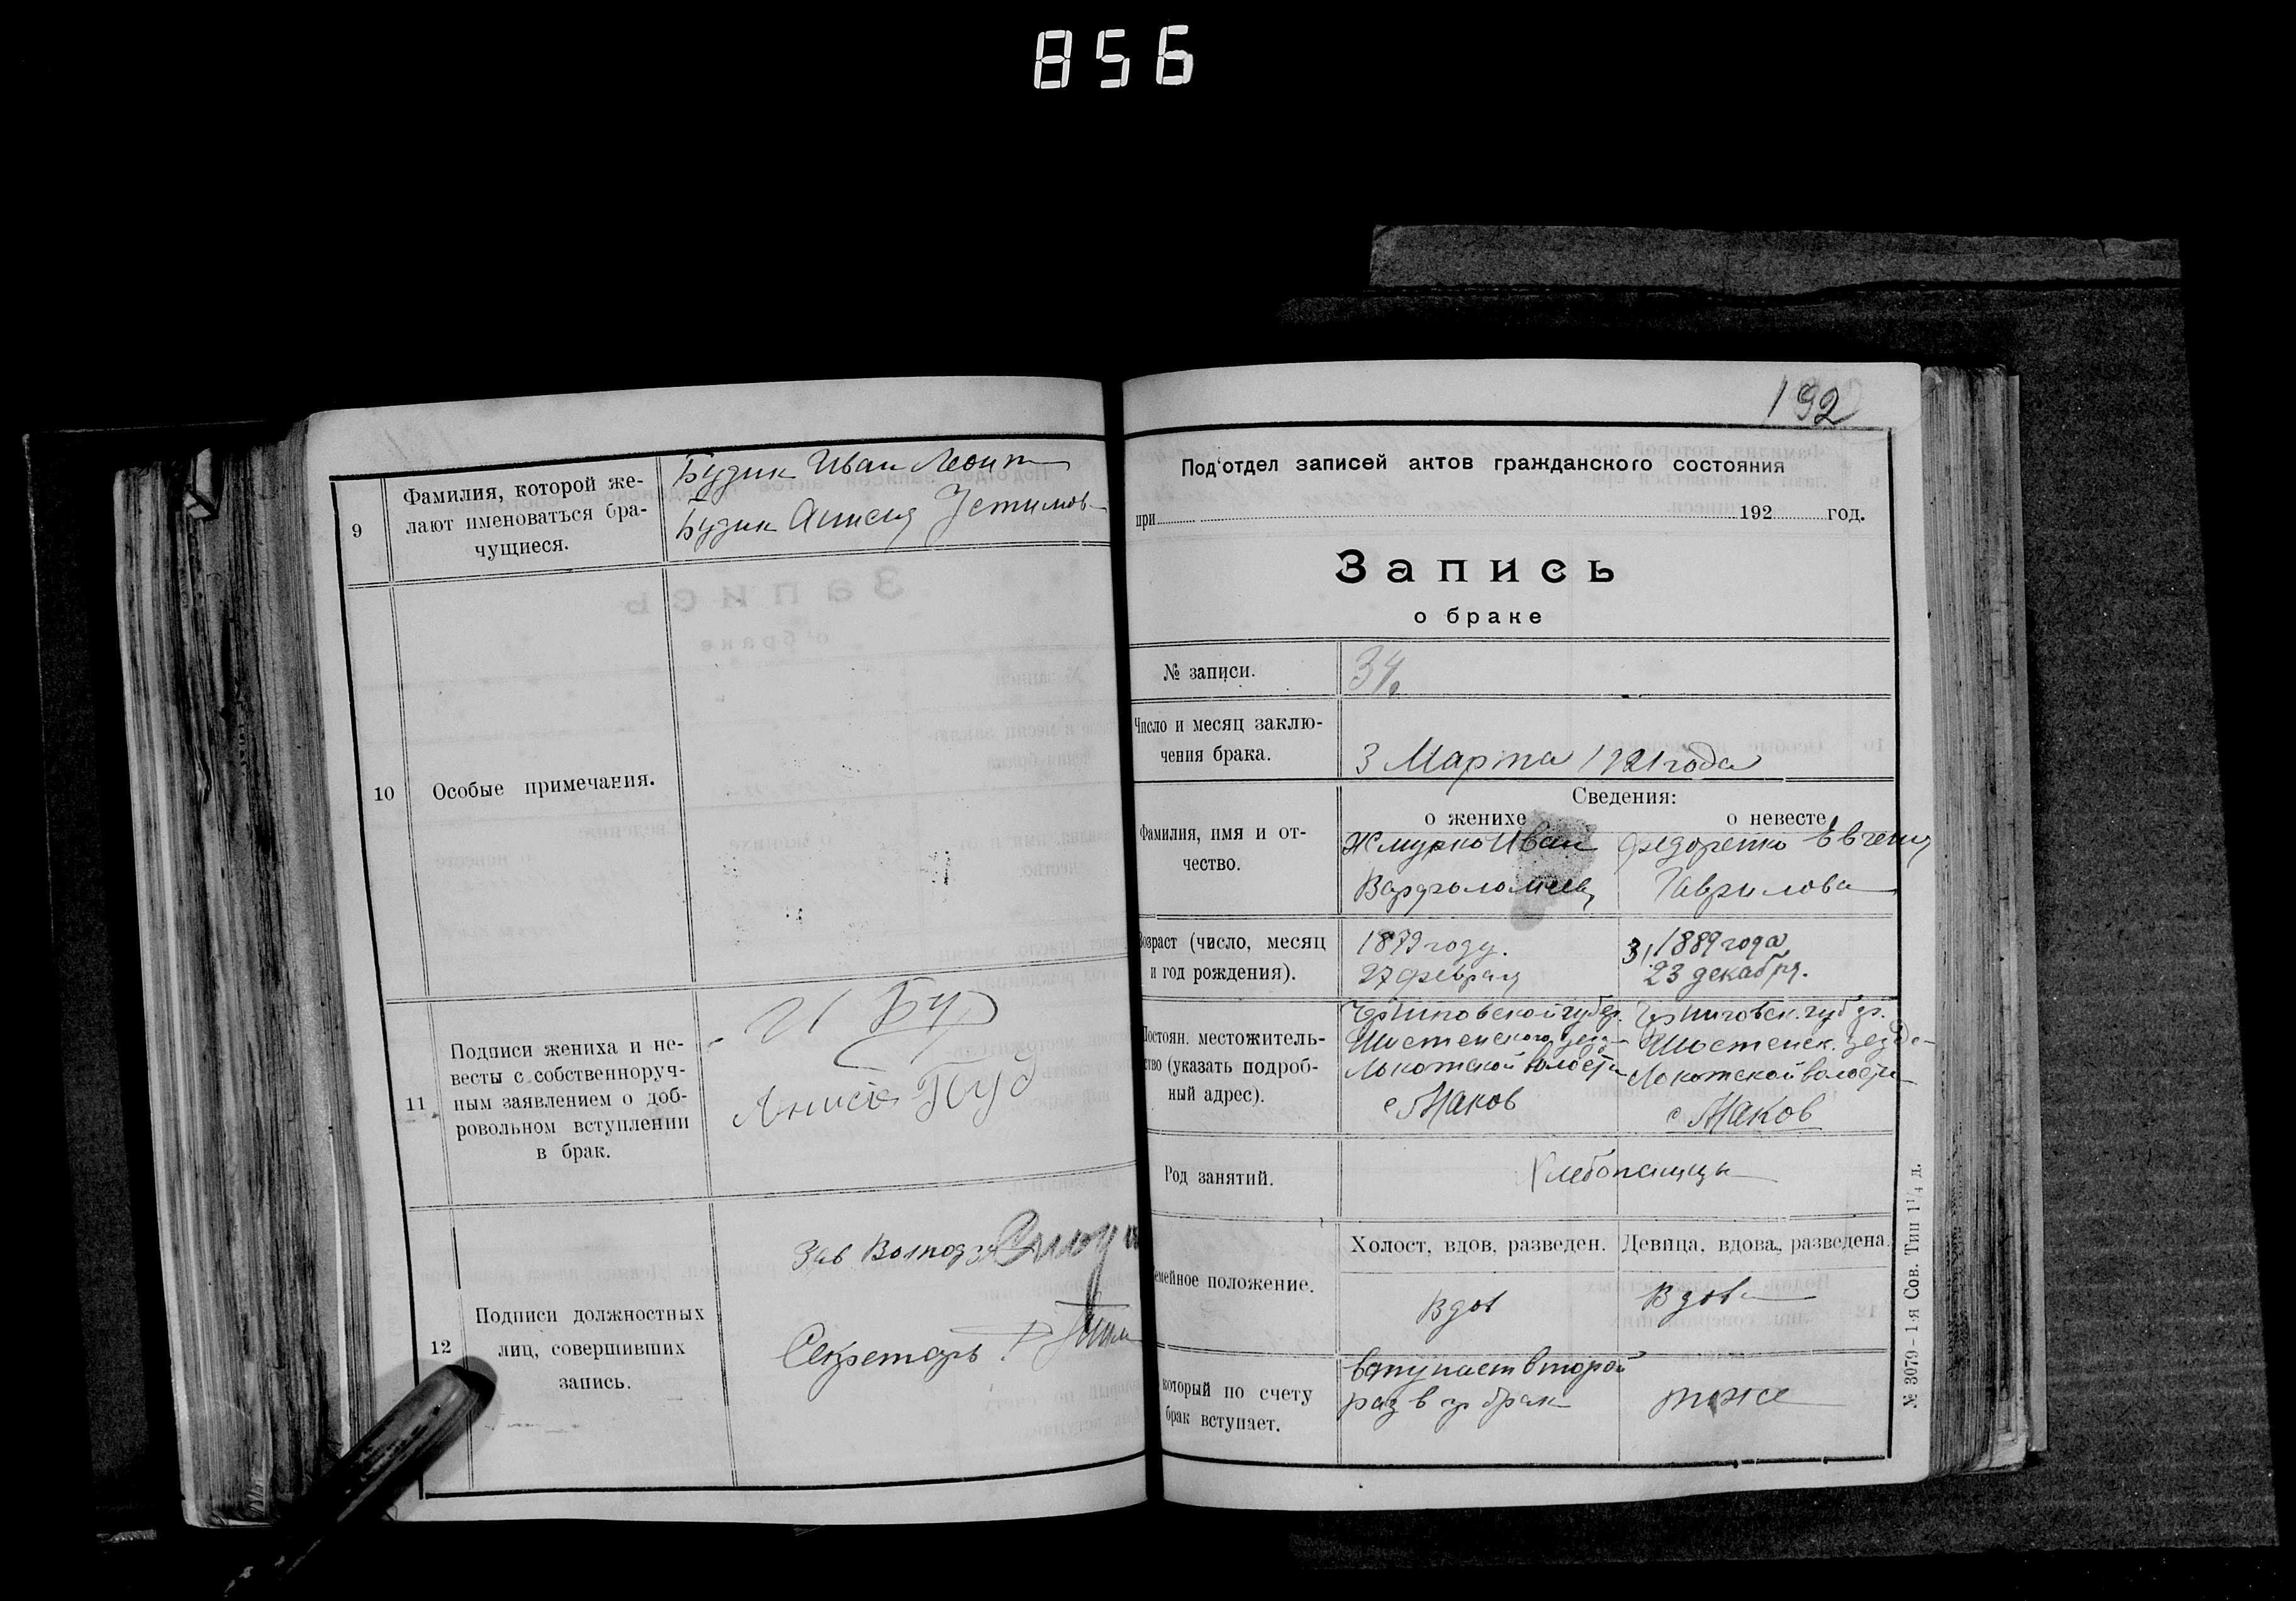 856
9
Фамилия, которой же-
лают именоваться бра-
чущиеся.
Будик Иван Леонт
Будик Анисия Устимов
10
Особые примечания.
11
Подписи жениха и не-
весты с собственноруч-
ным заявлением о доб-
ровольном вступлении
в брак.
И Буд
Анисія Буд
12
Подписи должностных
лиц, совершивших
запись.
Зав
Секретарь
192
Под'отдел записей актов гражданского состояния
при 192 год.
Запись
о браке
№ записи.
34.
Число и месяц заклю-
чения брака.
3 Марта 1921 года
Сведения:
о женихе
о невесте
Фамилия, имя и от-
чество.
Жмурко Иван
Варфоломеев
Федоренко Евгения
Гаврилова
Возраст (число, месяц
и год рождения).
1879 году.
27 февраля
31
1889 года
23 декабря.
Постоян. местожитель-
ство (указать подроб-
ный адрес).
Черниговской губер.
Шостенского уезд
Локотской волости
с Маков
Черниговск. губер.
Шостенск. уезде
Локотской волости
с Маков
Род занятий.
Хлебопашцы
Семейное положение.
Холост, вдов, разведен.
Девица, вдова, разведена.
Вдов
Вдова
который по счету
брак вступает.
вступает второй
раз в гр брак
тоже
№ 3079 - 1-я Сов. Тип 1¹/₄ д.